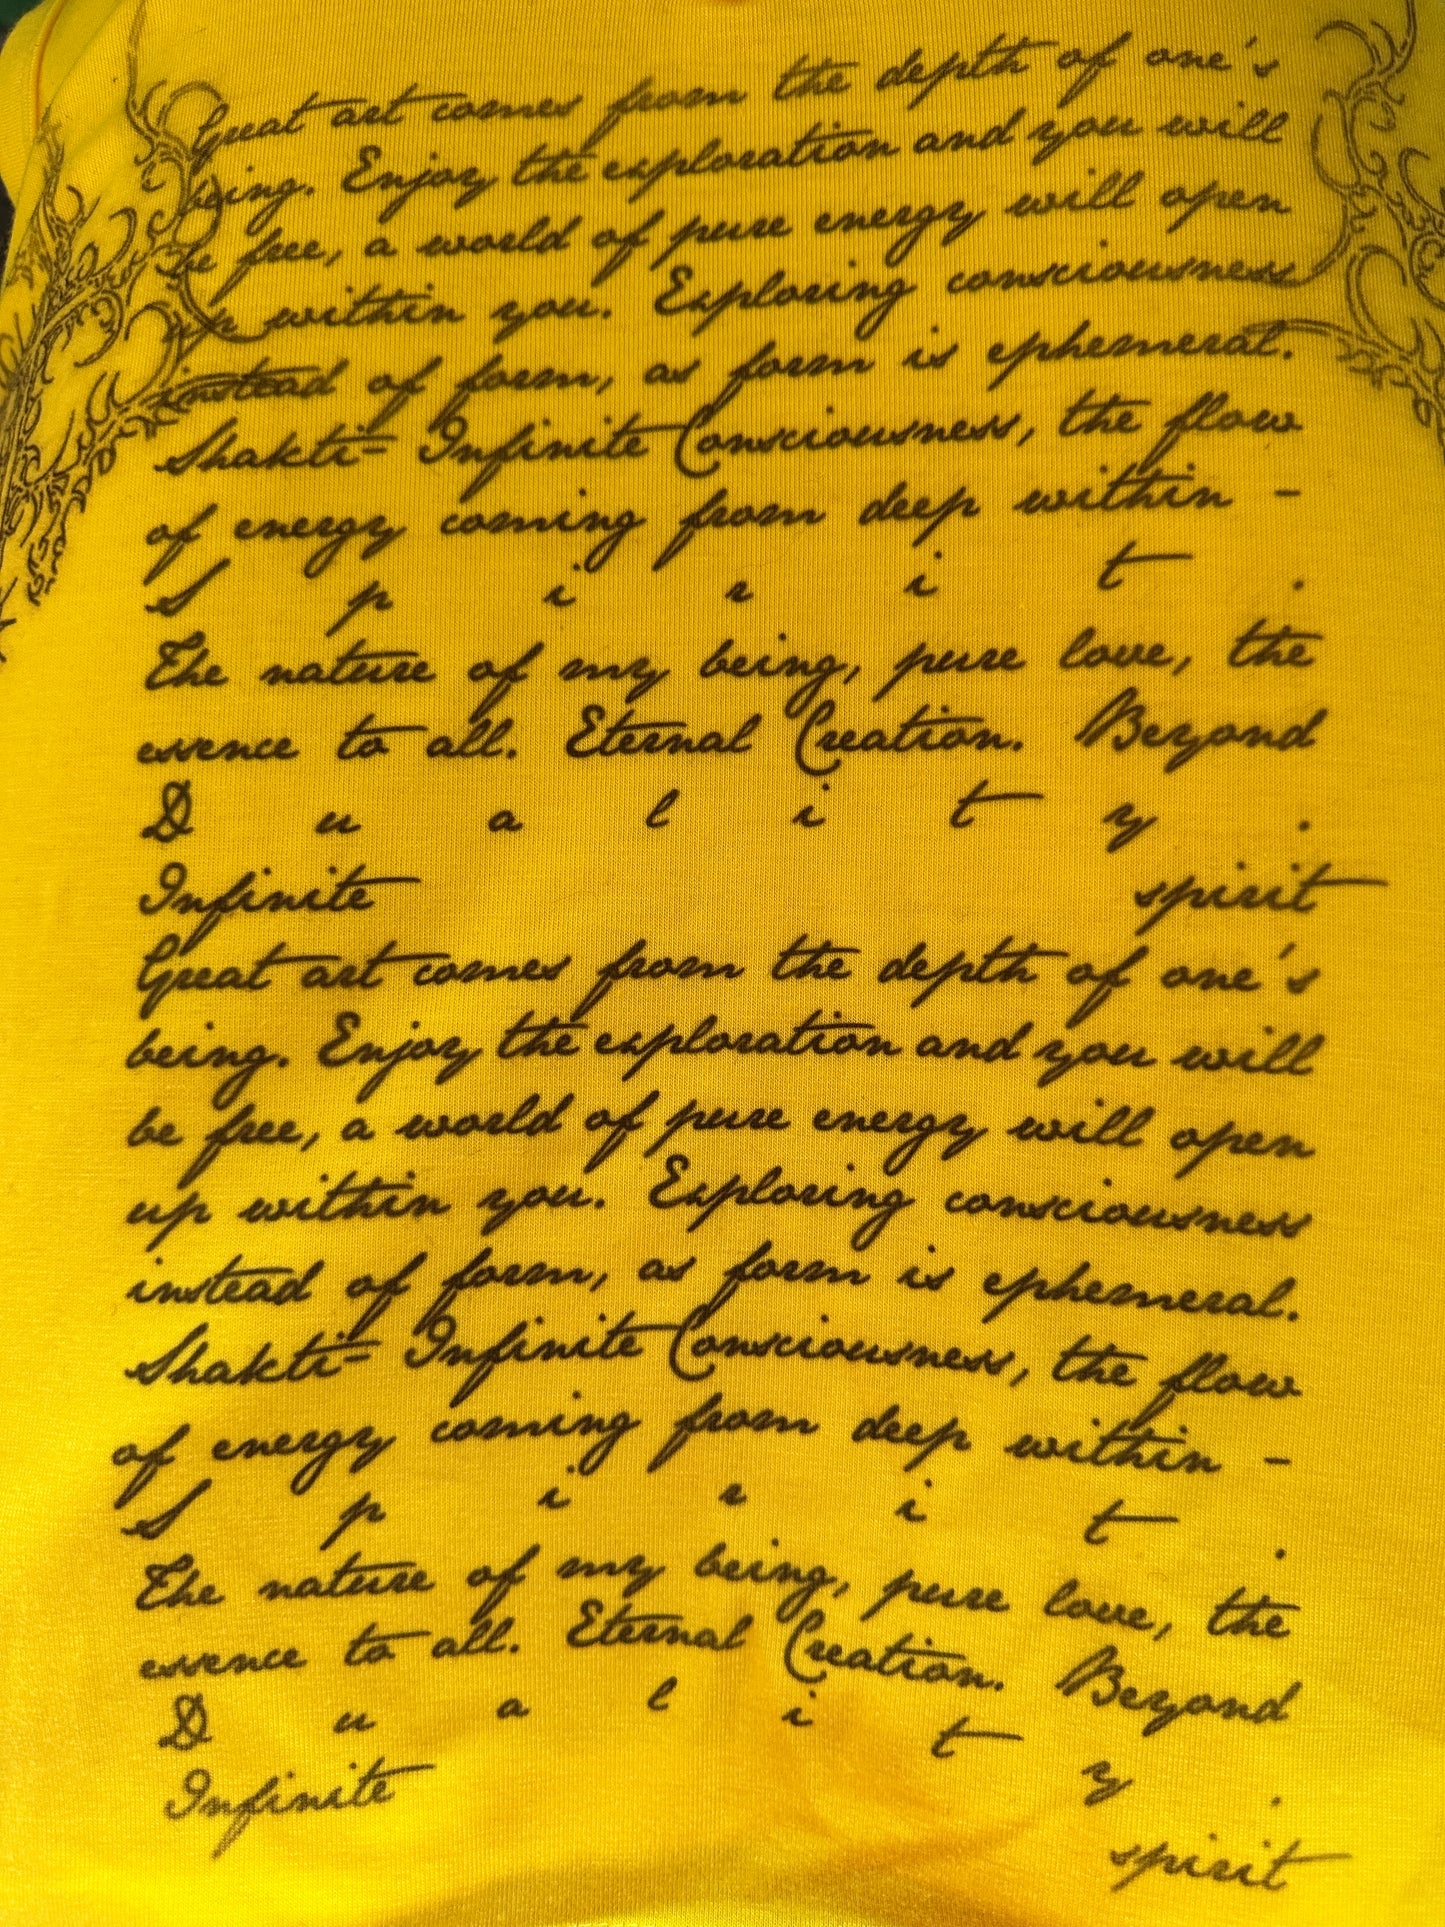 Great art comes from the depth of one's
being. Enjoy the exploration and you will
be free, a world of pure energy will open
up within you. Exploring consciousness
instead of form, as form is ephemeral.
Shakti- Infinite Consciousness, the flow
of energy coming from deep within -
S p i r i t .
The nature of my being, pure love, the
essence to all. Eternal Creation. Beyond
D u a l i t y .
Infinite spirit
Great art comes from the depth of one's
being. Enjoy the exploration and you will
be free, a world of pure energy will open
up within you. Exploring consciousness
instead of form, as form is ephemeral.
Shakti- Infinite Consciousness, the flow
of energy coming from deep within -
S p i r i t .
The nature of my being, pure love, the
essence to all. Eternal Creation. Beyond
D u a l i t y .
Infinite spirit